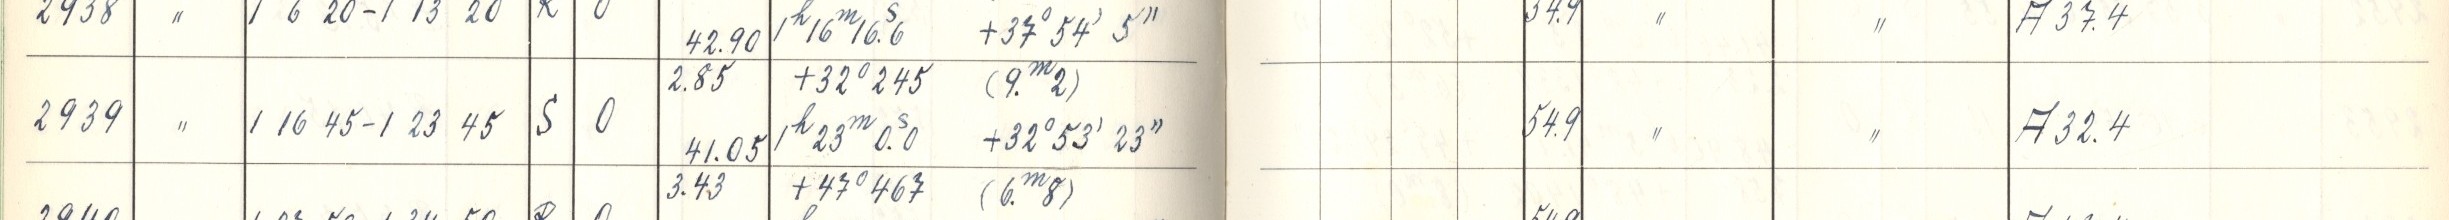 2938 " 1 6 20-1 13 20 R 0 42.90 1h 16m 16.s6 +37° 54' 5" 54.9 " " A 37.4
2.85 +32° 245 (9.m2)
2939 " 1 16 45-1 23 45 S 0 41.05 1h 23m 0.s0 +32° 53' 23" 54.9 " " A 32.4
3.43 +47° 467 (6.m8)
2940 R 0 54.9